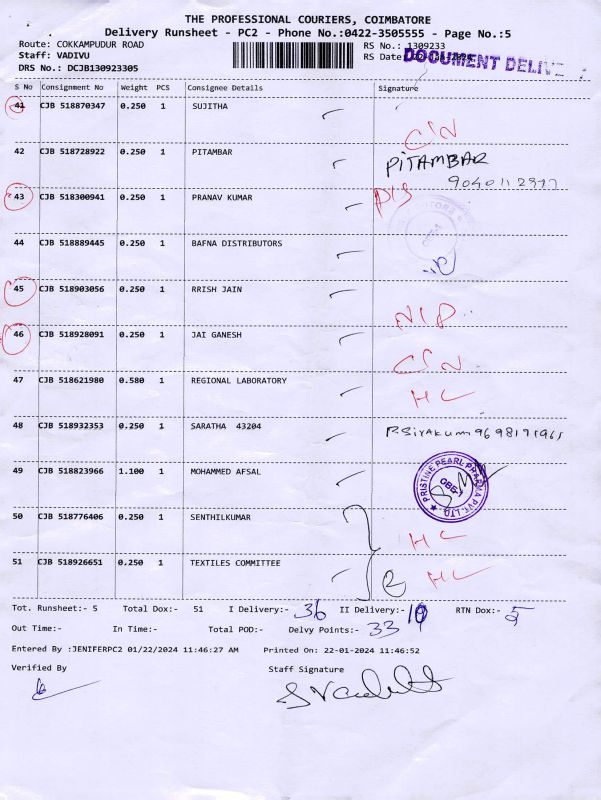 THE PROFESSIONAL COURIERS, COIMBATORE
Delivery Runsheet - PC2 - Phone No.:0422-3505555 - Page No.:5
Route: COKKAMPUDUR ROAD RS No.: 1309233
Staff: VADIVU RS Date:
DRS No.: DCJB130923305
DOCUMENT DELIVE
S No Consignment No Weight PCS Consignee Details Signature
41 CJB 518870347 0.250 1 SUJITHA
C/N
42 CJB 518728922 0.250 1 PITAMBAR PITAMBAR
43 CJB 518300941 0.250 1 PRANAV KUMAR
44 CJB 518889445 0.250 1 BAFNA DISTRIBUTORS
45 CJB 518903056 0.250 1 RRISH JAIN
46 CJB 518928091 0.250 1 JAI GANESH
C/N
47 CJB 518621980 0.580 1 REGIONAL LABORATORY HC
48 CJB 518932353 0.250 1 SARATHA 43204
49 CJB 518823966 1.100 1 MOHAMMED AFSAL
PRISTINE PEARL PHARMA PVT. LTD.
CBE-1
50 CJB 518776406 0.250 1 SENTHILKUMAR
HC
51 CJB 518926651 0.250 1 TEXTILES COMMITTEE HC
Tot. Runsheet:- 5 Total Dox:- 51 I Delivery:- 36 II Delivery:- 10 RTN Dox:- 5
Out Time:- In Time:- Total POD:- Delvy Points:- 33
Entered By :JENIFERPC2 01/22/2024 11:46:27 AM Printed On: 22-01-2024 11:46:52
Verified By Staff Signature